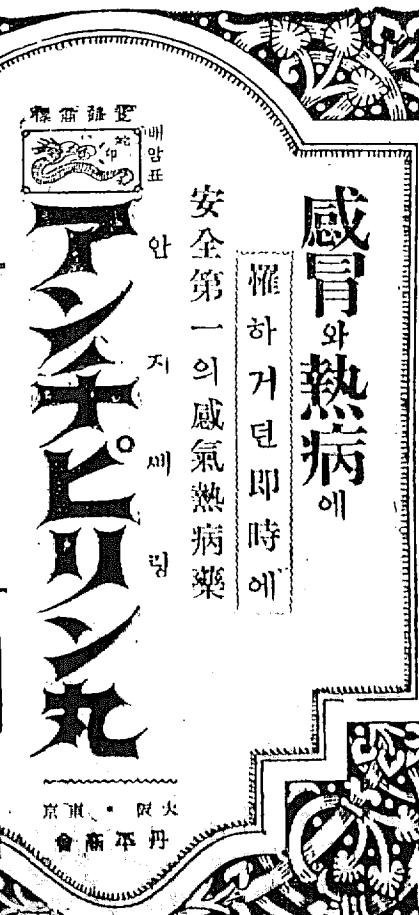 感冒와熱病에
罹하거던即時에
安全第一의感氣熱病藥
登錄商標
蛇印
배암표
안지 링
アンチピリン丸
大阪・東京
丹平商會